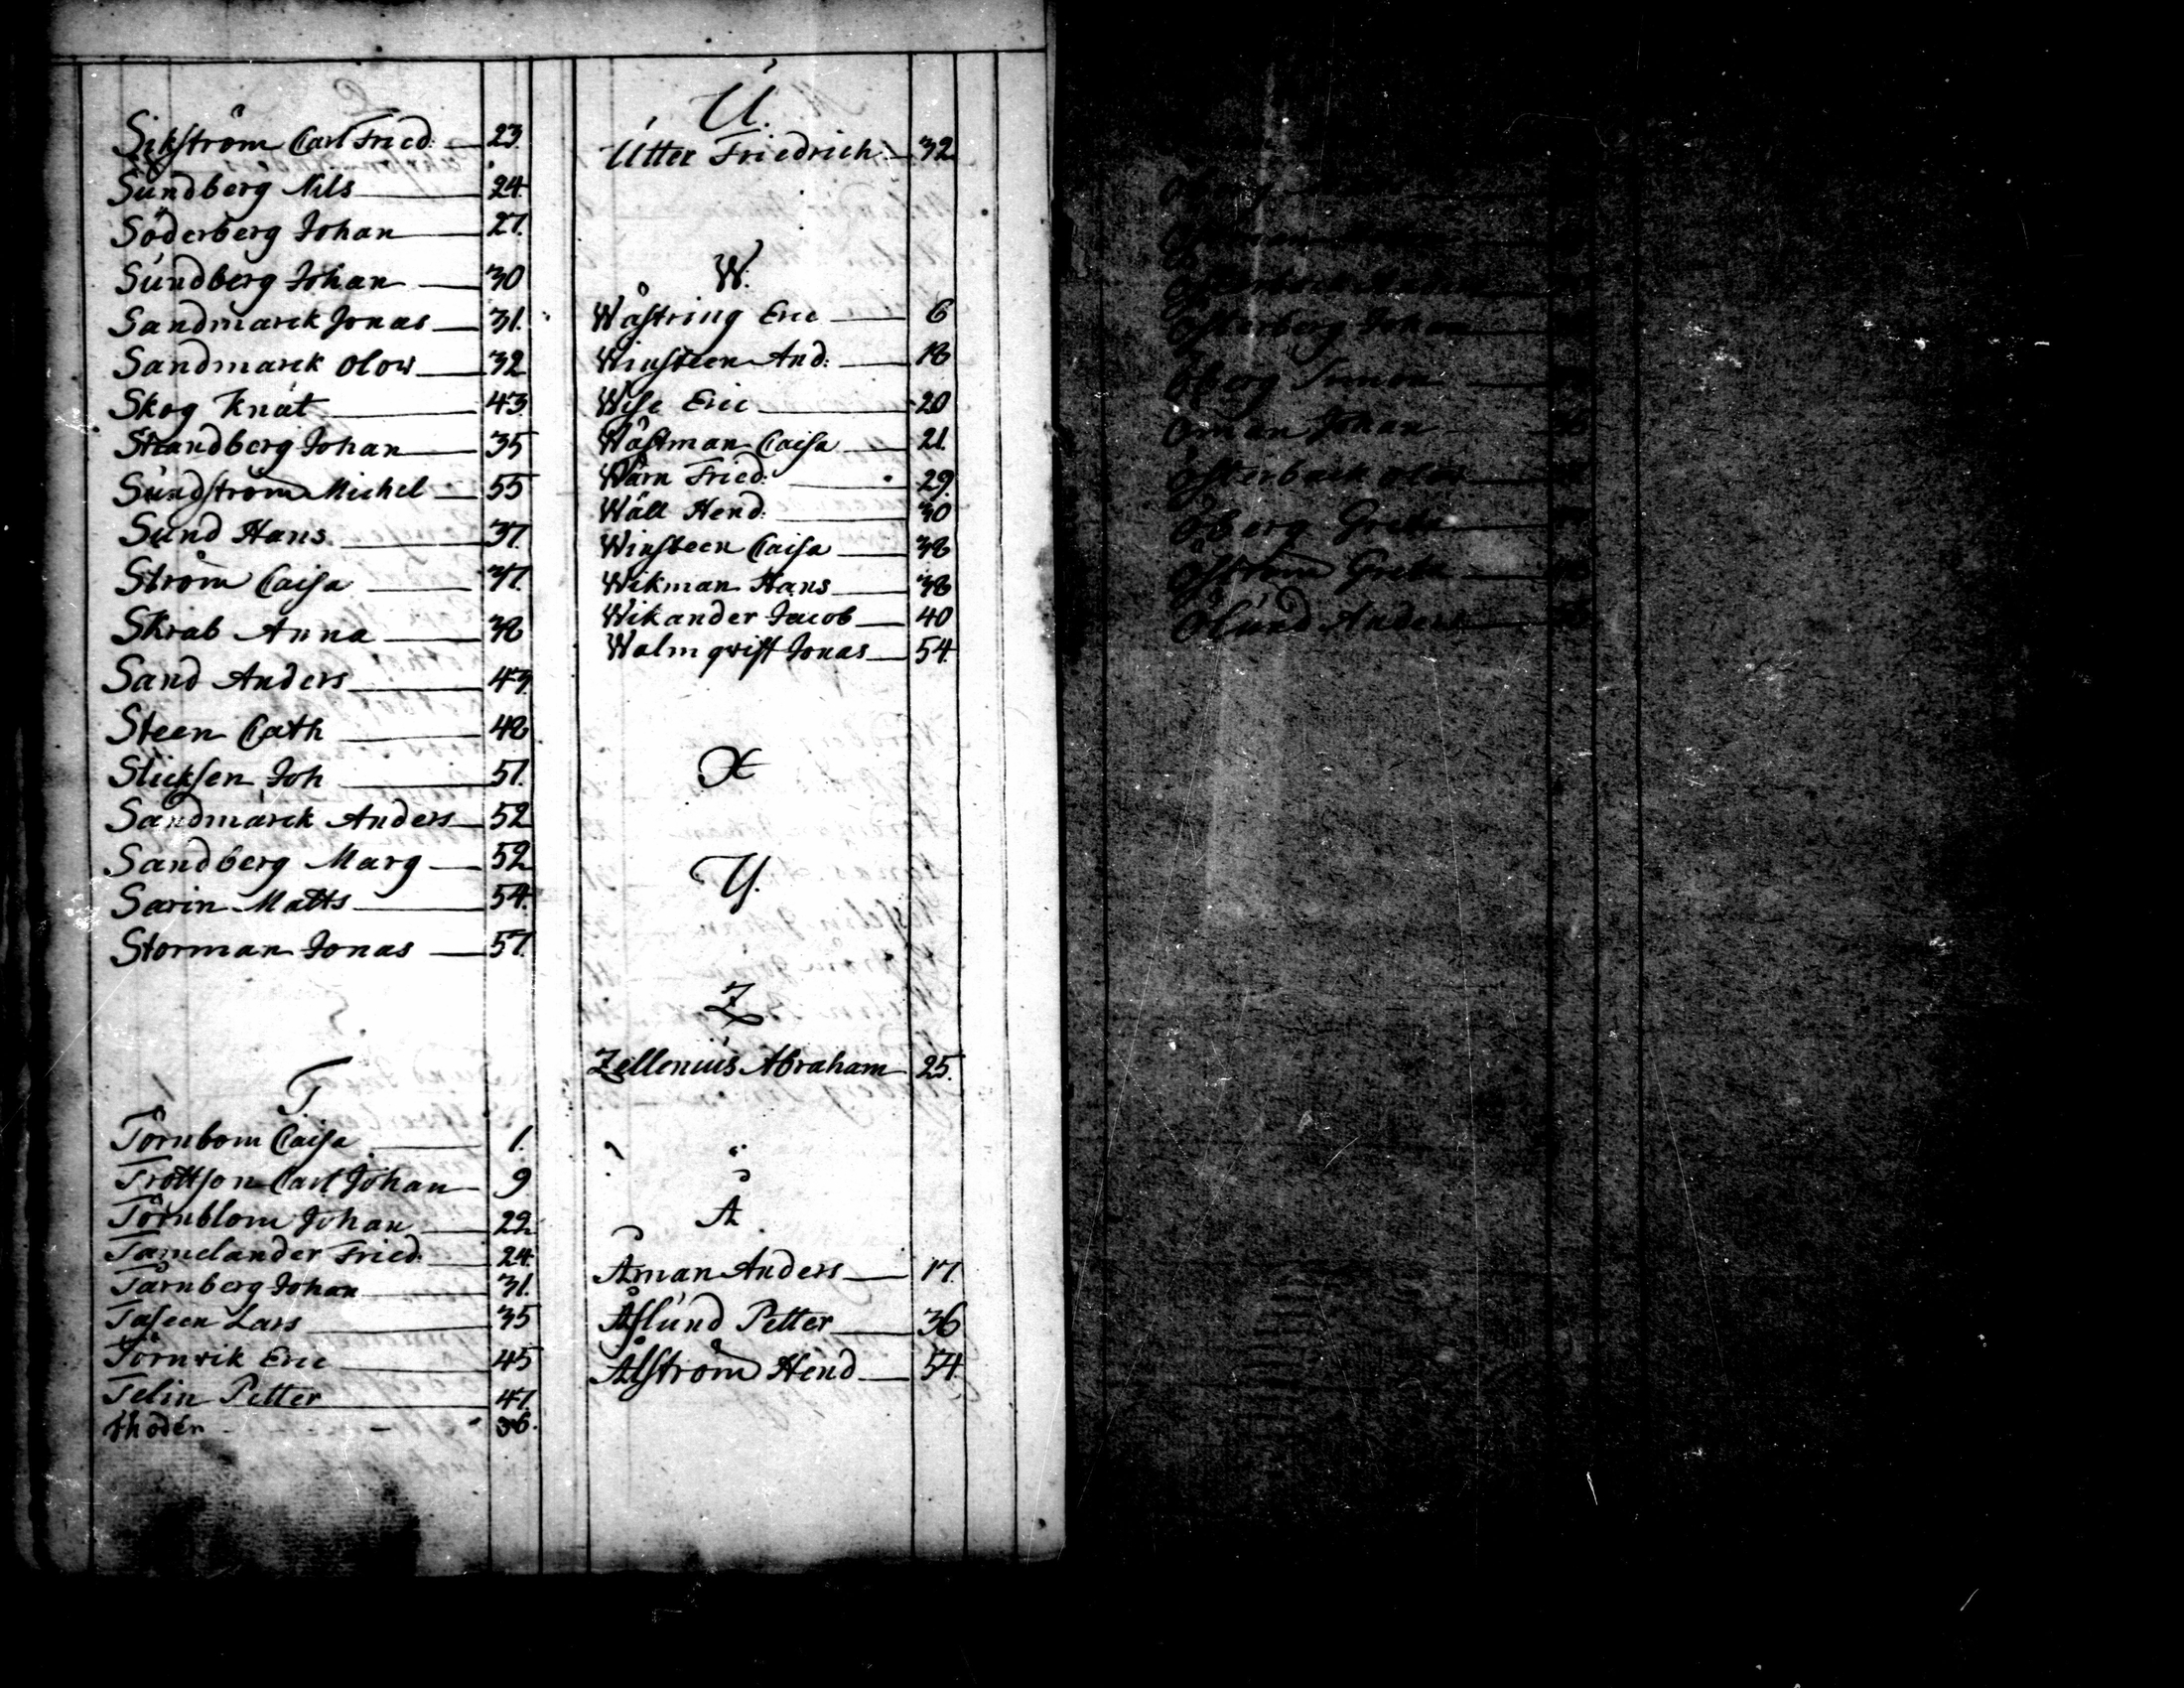 Sikström Carl Fried: 23.
Sundberg Nils 24.
Söderberg Johan 27.
Sundberg Johan 30
Sandmarck Jonas 31.
Sandmarck Olow 32
Skog Knut 43.
Strandberg Johan 35
Sundström Michel 55
Sund Hans 37.
Ström Caisa 37.
Skrab Anna 38
Sand Anders 43
Steen Cath 48
Sticksen Joh 51.
Sandmarck Anders 52
Sandberg Marg 52
Sarin Matts 54.
Storman Jonas 57.
T.
Törnbom Caisa 1.
Trottson Carl Johan 9
Törnblom Johan 22
Tamelander Fried: 24.
Tårnberg Johan 31.
Taseen Lars 35
Törnvik Eric 45
Telin Petter 47.
thodén 36.
U.
Utter Friedrich 32
W.
Wåstring Eric 6
Winsteen And: 18
Wise Eric 20
Wåstman Caisa 21.
Wårn Fried: 29.
Wäll Hend: 30
Winsteen Caisa 38
Wikman Hans 38
Wikander Jacob 40
Walmqvist Jonas 54.
X
Y.
Z
Zellenius Abraham 25.
Å
Åman Anders 17.
Åslund Petter 36
Ålström Hend 54.
Öberg
Österback
Österberg Johan
Öberg Simon
Öman Johan
Österback Olow
Öberg Greta
Öström Greta
Ölund Anders